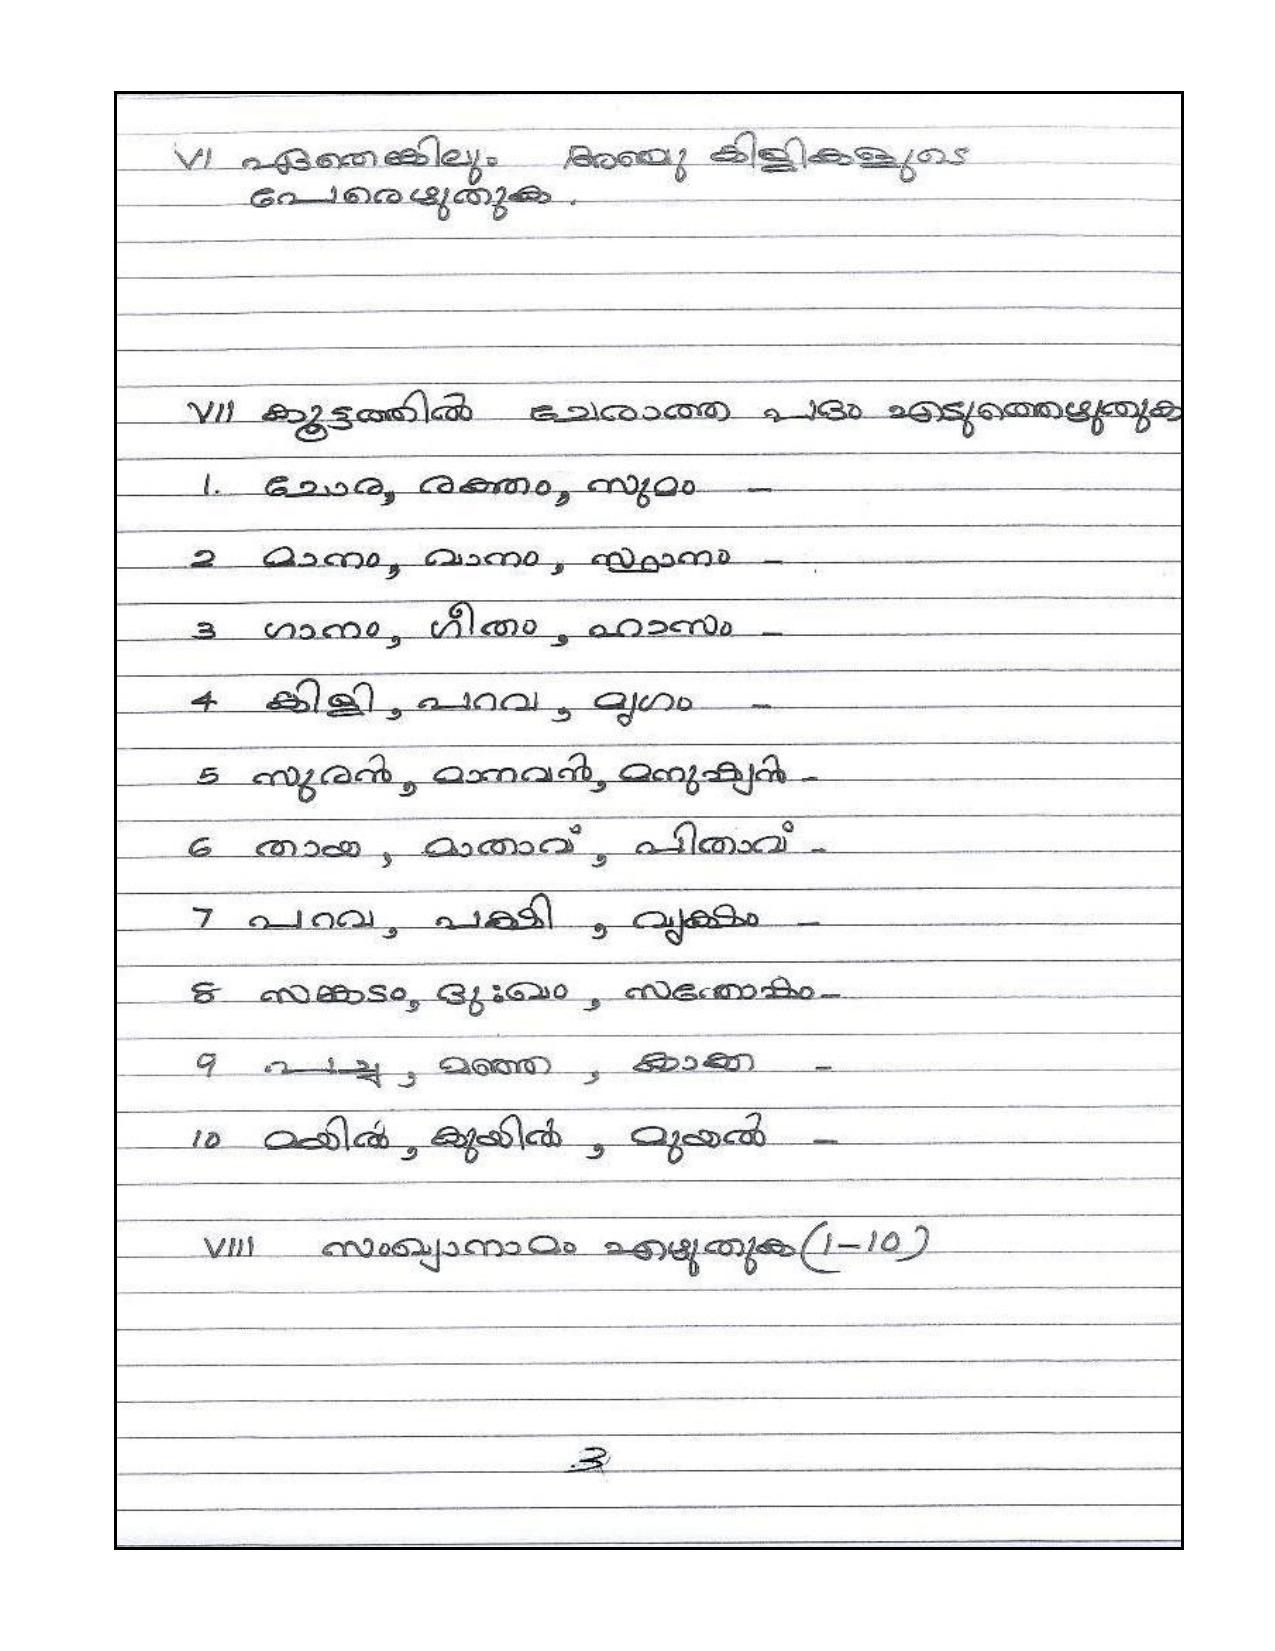 VI ഏതെങ്കിലും അഞ്ചു കിളികളുടെ
പേരെഴുതുക.
VII കൂട്ടത്തിൽ ചേരാത്ത പദം എടുത്തെഴുതുക
1. ചോര, രക്തം, സുമം -
2 മാനം, വാനം, സ്ഥാനം -
3 ഗാനം, ഗീതം, ഹാസം -
4 കിളി, പറവ, മൃഗം -
5 സുരൻ, മാനവൻ, മനുഷ്യൻ -
6 തായ, മാതാവ്, പിതാവ് -
7 പറവ, പക്ഷി, വൃക്ഷം -
8 സങ്കടം, ദുഃഖം, സന്തോഷം -
9 പച്ച, മഞ്ഞ, കാക്ക -
10 മയിൽ, കുയിൽ, മുയൽ -
VIII സംഖ്യാനാമം എഴുതുക (1-10)
3